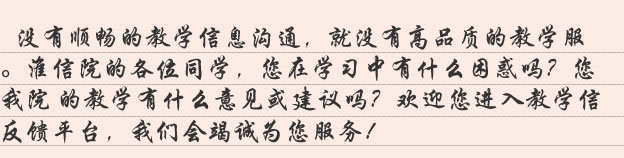 没有顺畅的教学信息沟通，就没有高品质的教学服
。淮信院的各位同学，您在学习中有什么困惑吗？您
我院 的教学有什么意见或建议吗？欢迎您进入教学信
反馈平台，我们会竭诚为您服务！